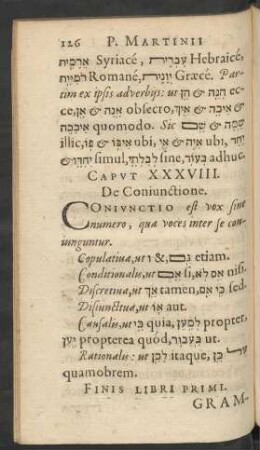 126 P. MARTINII
אֲרָמִית Syriacé, עִבְרִית Hebraicé,
רֹמִיִּית Romané, יְוָנִית Græcé. Par-
tim ex ipsis adverbijs: ut הֵן & הִנֵּה ec-
ce, אָן & אָנָּה obsecro, אֵיךְ & אֵיכָה &
אֵיכָכָה quomodo. Sic שָׁם & שָׁמָּה
illic, פּוֹ & אֵיפוֹ ubi, אַיֵּה & אַי ubi,
יַחַד & יַחְדָּו simul, לְבִלְתִּי sine, בְּעוֹד adhuc.
CAPVT XXXVIII.
De Coniunctione.
CONIVNCTIO est vox sine
numero, qua voces inter se con-
iunguntur.
Copulatiua, ut וְ &, גַּם etiam.
Conditionalis, ut אִם si, אִם לֹא nisi.
Discretiua, ut אַךְ tamen, כִּי אִם sed.
Disiunctiua, ut אוֹ aut.
Causalis, ut כִּי quia, לְמַעַן propter,
יַעַן propterea quód, בַּעֲבוּר ut.
Rationalis: ut לָכֵן itaque, עַל כֵּן
quamobrem.
FINIS LIBRI PRIMI.
GRAM-